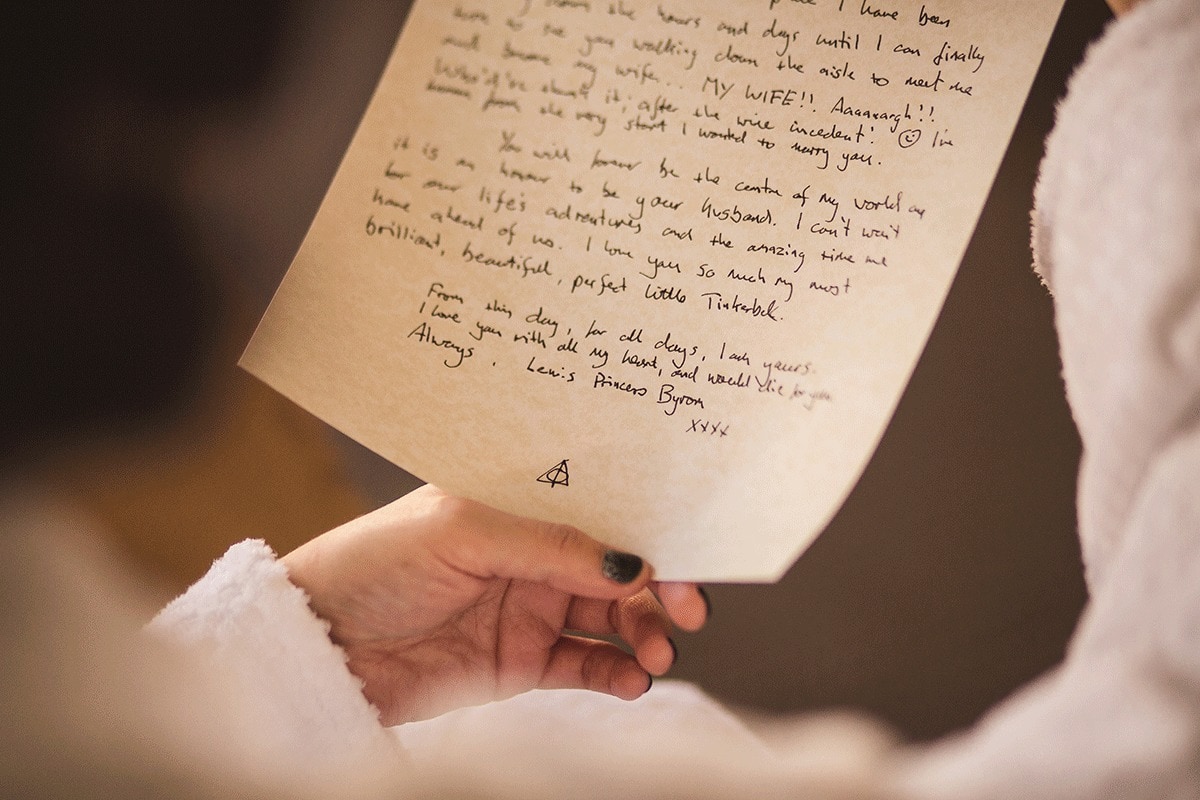 I have been
down the hours and days until I can finally
see you walking down the aisle to meet me
and become my wife... MY WIFE!! Aaaaaargh!!
it, after the wine incedent! ☺ I've
known from the very start I wanted to marry you.
You will forever be the centre of my world an
it is an honour to be your husband. I can't wait
for our life's adventures and the amazing time we
have ahead of us. I love you so much my most
brilliant, beautiful, perfect little Tinkerbell.
From this day, for all days, I am yours.
I love you with all my heart, and would die for you
Always. Lewis Princess Byrom
xxxx